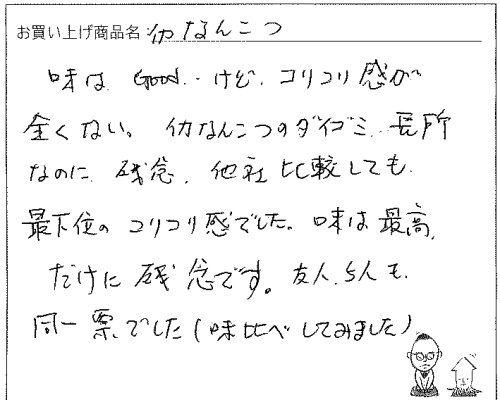 お買い上げ商品名:イカなんこつ
味は Good..けど、コリコリ感が
全くない。イカなんこつのダイゴミ、長所
なのに、残念、他社比較しても、
最下位の コリコリ感でした。味は最高、
だけに 残念です。友人、5人も、
同一票、でした(味比べしてみました)